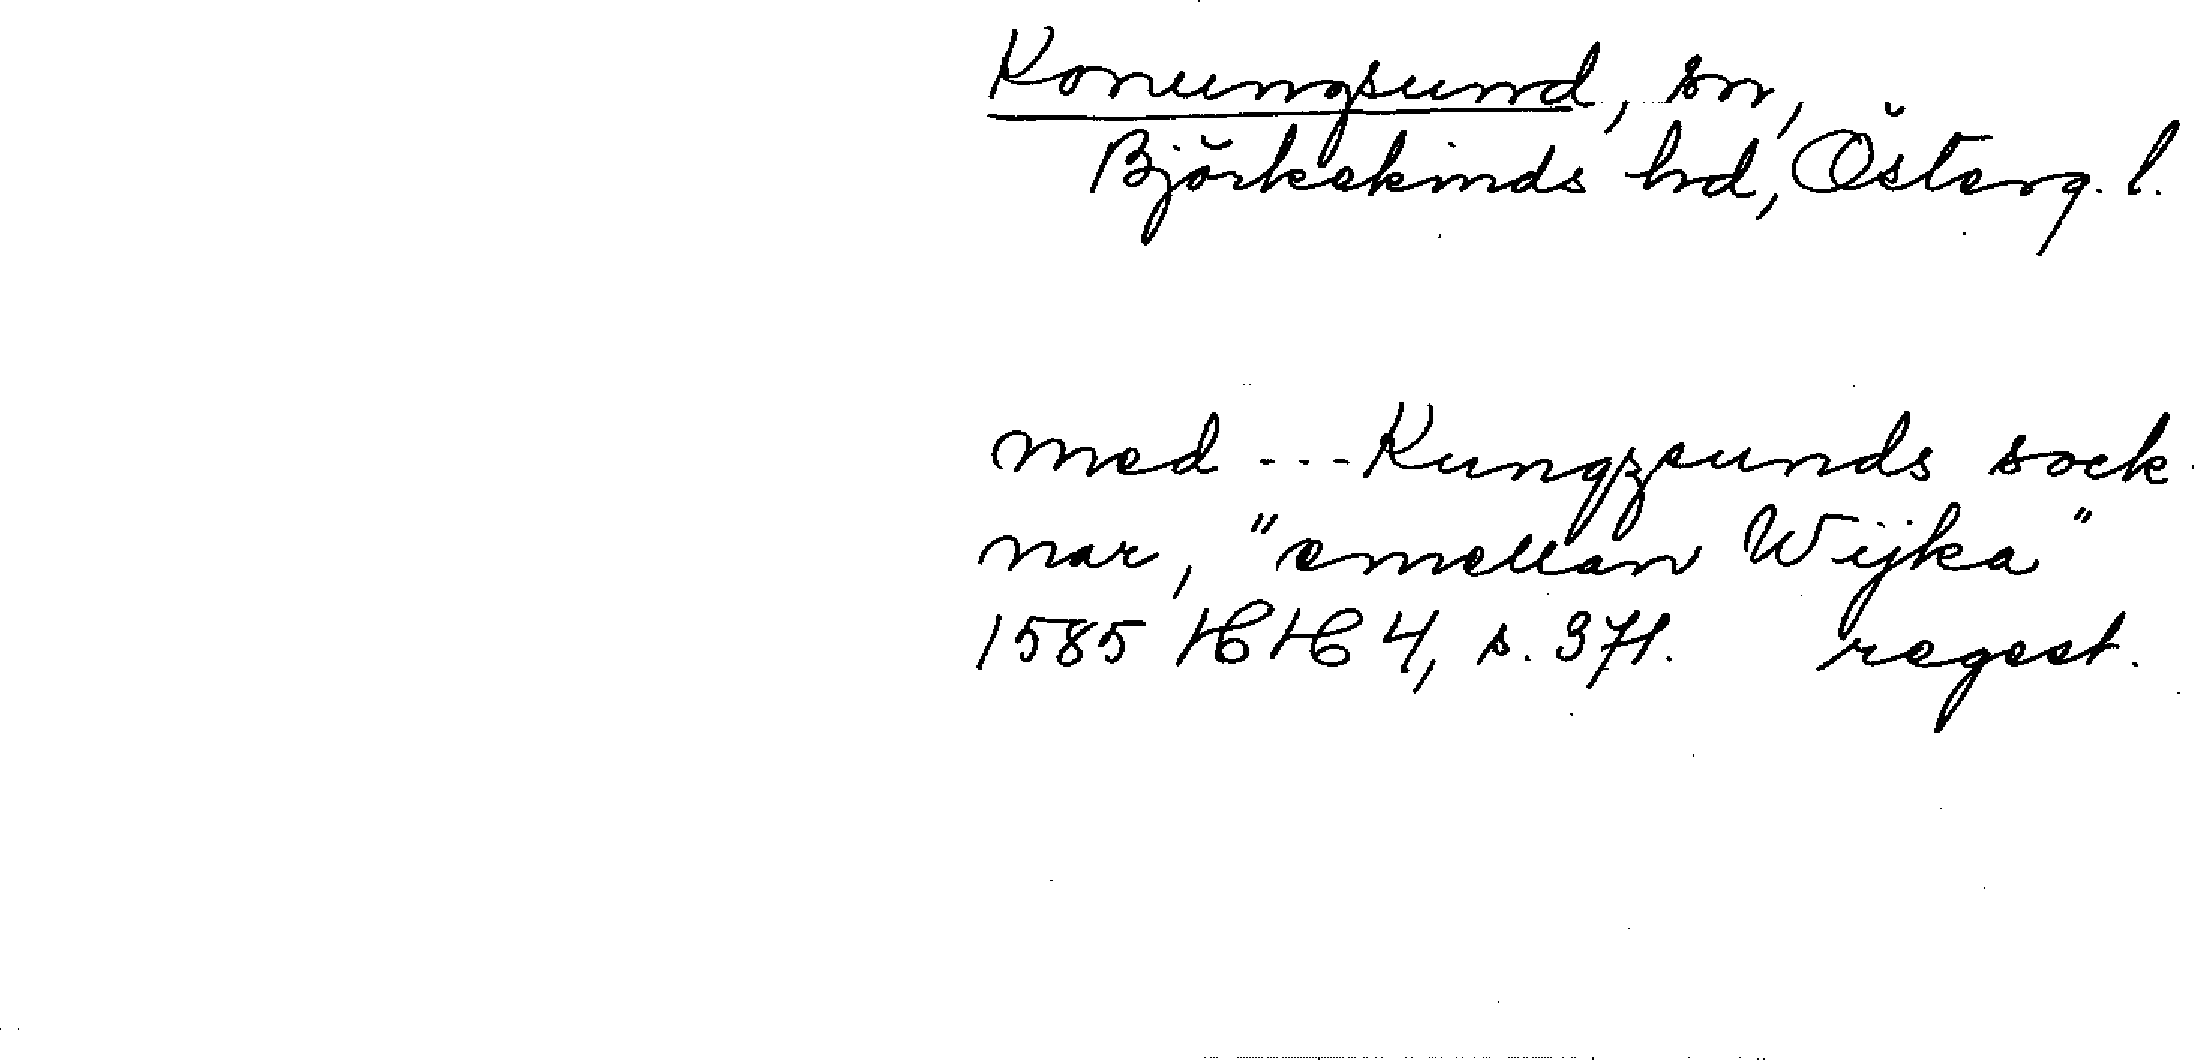 Konungsund, sn,
Björkekinds hd, Österg. l.
med --- Kungzsunds sock-
nar, "emellan Wijka"
1585 HH 4, s. 371. regest.